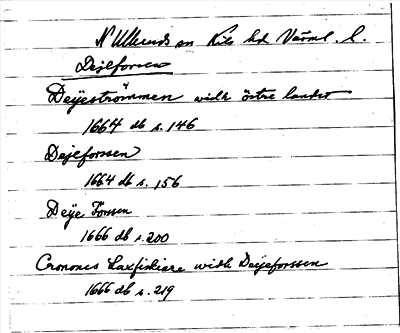 N Ulleruds sn Kils hd Värml. l.
Dejeforsen
Deijeströmmen widh östre landet
1664 db s. 146
Dejeforssen
1664 db s. 156
Deije Forssen
1666 db s. 200
Cronones Laxfiskiare widh Deijeforssen
1666 db s. 219